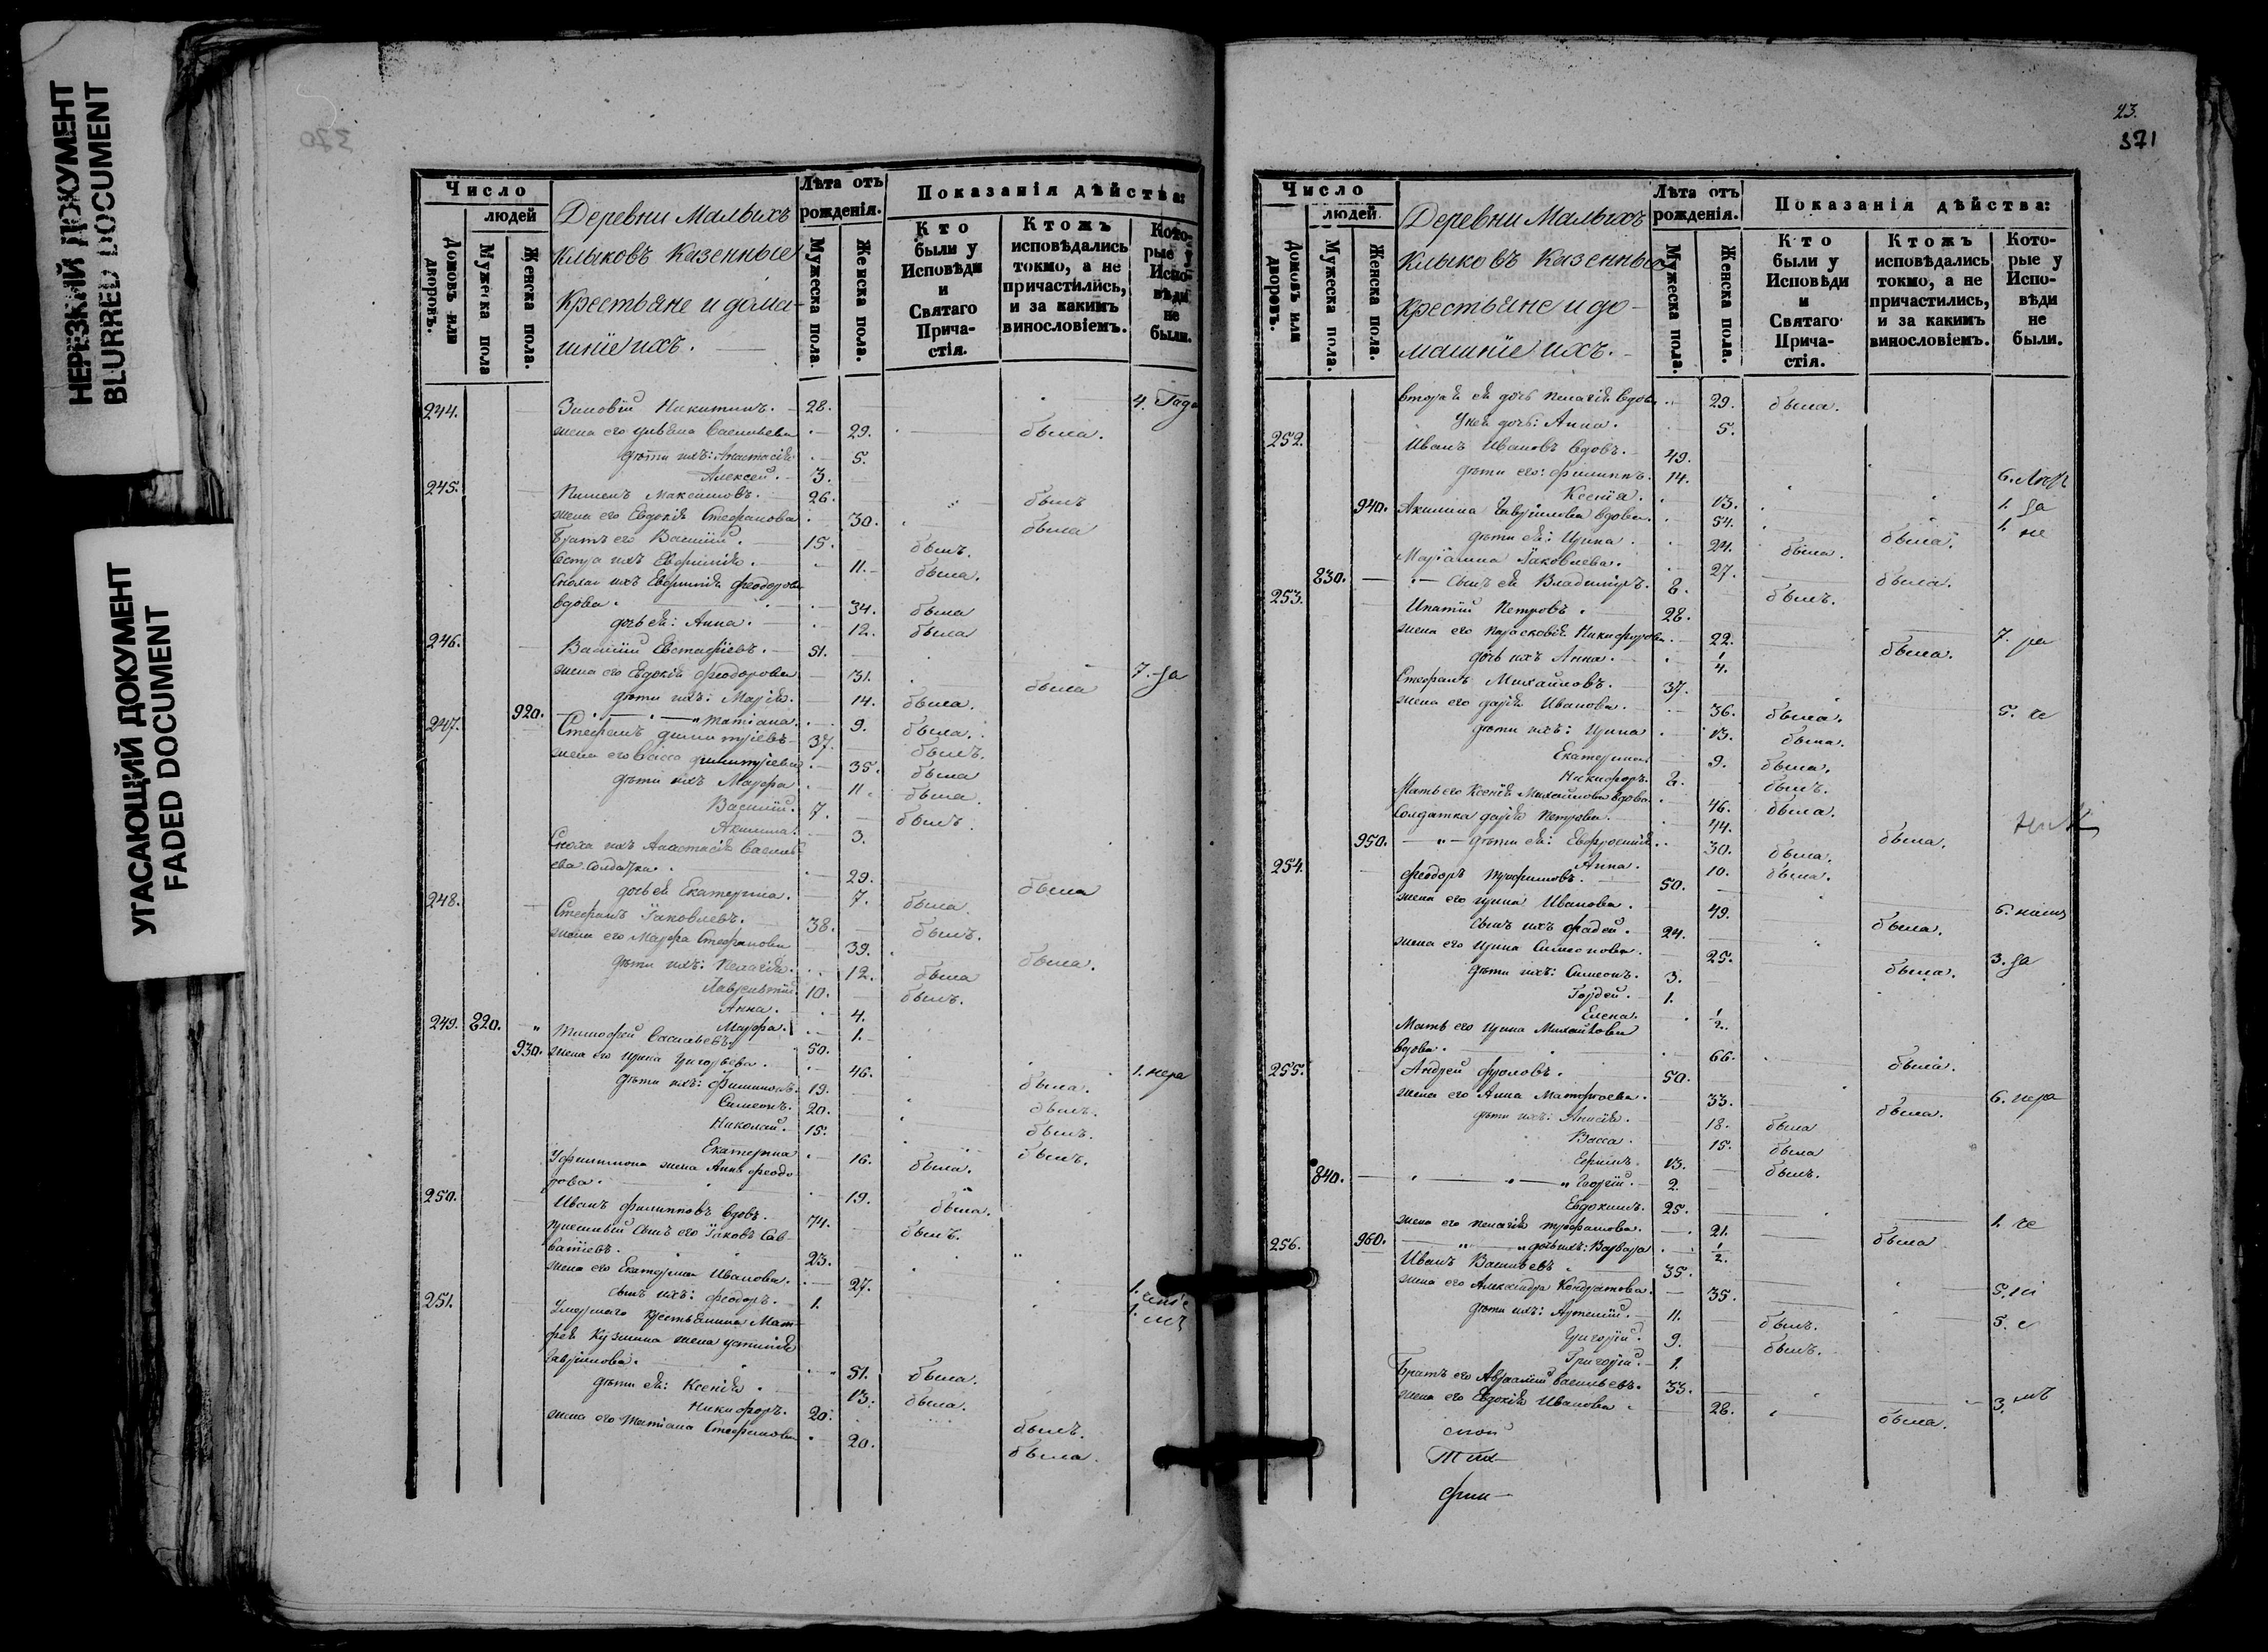 НЕРЕЗКИЙ ДОКУМЕНТ
BLURRED DOCUMENT
УГАСАЮЩИЙ ДОКУМЕНТ
FADED DOCUMENT
Число
людей
Домовъ или дворовъ.
Мужеска пола
Женска пола.
Деревни Малыхъ
Клыковъ Казенные
Крестьяне и дома-
шніе ихъ.
Лѣта отъ рожденія.
Мужеска пола.
Женска пола.
Показанія дѣйства:
Кто были у Исповѣди и Святаго Прича-стія.
Ктожъ исповѣдались токмо, а не причастились, и за какимъ винословіемъ.
Кото-рые у Испо-вѣди не были.
244. Зиновій Никитинъ. 28. 4.
жена его Ульяна Васильева 29. была.
дѣти ихъ: Анастасія 5.
Алексей. 3.
245. Пименъ Максимовъ. 26. былъ
жена его Евдокія Стефанова 30. была
Братъ его Василій. 15. былъ.
Сестра ихъ Евфимія. 11. была.
Сноха ихъ Евфимія Феодорова
вдова. 34. была
дочь ея: Анна. 12. была
246. Василій Евстафіевъ. 51. 7.
жена его Евдокія Феодорова 31. была
дѣти ихъ: Марія. 14. была.
920. Татіана. 9. была.
247. Стефанъ Димитріевъ 37. былъ.
жена его Васса Димитріева 35. была
дѣти ихъ Марфа 11. была.
Василій. 7. былъ.
Акилина. 3.
Сноха ихъ Анастасія Василь-
ева солдатка. 29. была
дочь ея Екатерина. 7. была.
248. Стефанъ Іаковлевъ. 38. былъ.
жена его Марфа Стефанова 39. была.
дѣти ихъ: Пелагія. 12. была
Лаврентій. 10. былъ.
Анна. 4.
820. Марфа. 1.
249. Тимофей Васильевъ. 50. 1.
930. жена его Ирина Григорьева. 46. была.
дѣти ихъ: Филимонъ. 19. былъ.
Симеонъ. 20. былъ.
Николай. 15. былъ.
Екатерина 16. была.
У Филимона жена Анна Феодо-
рова. 19. была.
250. Иванъ Филипповъ вдовъ. 74. былъ.
Пріемный сынъ его Іаковъ Сав-
ватіевъ. 23. 1.
жена его Екатерина Иванова. 27. 1.
сынъ ихъ: Феодоръ. 1.
251. Умершаго крестьянина Мат-
фея Кузмина жена Устинія
Гаврилова. 51. была.
дѣти ея: Ксенія. 13. была.
Никифоръ. 20. былъ.
жена его Татіана Стефанова 20. была.
23.
371
Число
людей
Домовъ или дворовъ.
Мужеска пола
Женска пола.
Деревни Малыхъ
Клыковъ Казенные
Крестьяне и до-
машніе ихъ.
Лѣта отъ рожденія.
Мужеска пола.
Женска пола.
Показанія дѣйства:
Кто были у Исповѣди и Святаго Прича-стія.
Ктожъ исповѣдались токмо, а не причастились, и за какимъ винословіемъ.
Кото-рые у Испо-вѣди не были.
вторая ея дочь Пелагія вдова 29. была.
У ней дочь: Анна. 5.
252. Иванъ Ивановъ вдовъ. 49. 6.
дѣти его: Филиппъ. 14. 1.
Ксенія. 13. 1.
940. Акилина Гаврилова вдова. 54. была.
дѣти ея: Ирина. 24. была.
Маріанна Іаковлева. 27. была.
830. Сынъ ея Владиміръ. 8. былъ.
253. Ипатій Петровъ. 28. 7.
жена его Парасковія Никифорова. 22. была.
дочь ихъ Анна. 1/4.
Стефанъ Михайловъ. 37. 5.
жена его Дарія Иванова. 36. была.
дѣти ихъ: Ирина 13. была.
Екатерина 9. была.
Никифоръ. 8. былъ.
Мать его Ксенія Михайлова вдова. 46. была.
Солдатка Дарія Петрова. 44. была.
950. дѣти ея: Евфросинія. 30. была.
Анна. 10. была.
254. Феодоръ Трофимовъ. 50. 6.
жена его Ирина Иванова. 49. была.
сынъ ихъ Фадей. 24. 3.
жена его Ирина Симеонова. 25. была.
дѣти ихъ: Симеонъ. 3.
Гордей. 1.
Елена. 1/2.
Мать его Ирина Михайлова
вдова. 66. была.
255. Андрей Фроловъ. 50. 6.
жена его Анна Матфеева. 33. была.
дѣти ихъ: Анисія. 18. была
Васса. 15. была
Ефимъ. 13. былъ.
840. Георгій. 2.
Евдокимъ. 25. 1.
жена его Пелагія Трофимова. 21. была
960. дочь ихъ: Варвара 1/2.
256. Иванъ Васильевъ 35. 5.
жена его Александра Кондратова. 35. 5.
дѣти ихъ: Артемій. 11. былъ.
Григорій. 9. былъ.
Григорій. 1.
Братъ его Авраамій Васильевъ. 33. 3.
жена его Евдокія Иванова 28. была.